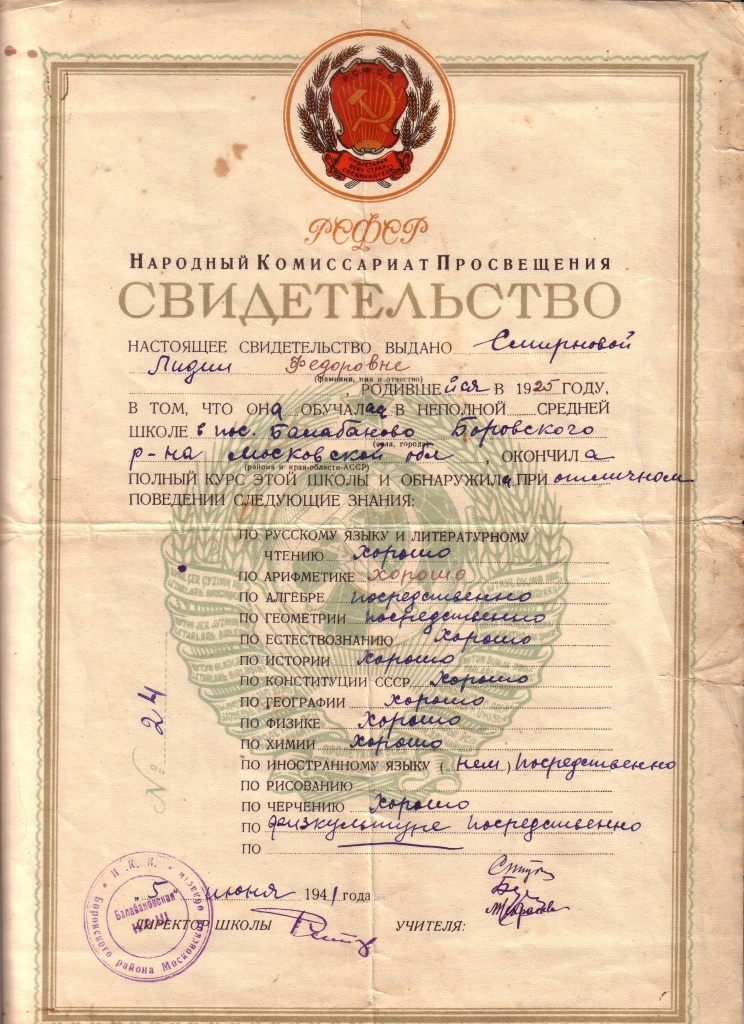 Р.С.Ф.С.Р.
ПРОЛЕТАРИИ
ВСЕХ СТРАН,
СОЕДИНЯЙТЕСЬ!
РСФСР
НАРОДНЫЙ КОМИССАРИАТ ПРОСВЕЩЕНИЯ
СВИДЕТЕЛЬСТВО
НАСТОЯЩЕЕ СВИДЕТЕЛЬСТВО ВЫДАНО Смирновой
Лидии Федоровне
(фамилия, имя и отчество)
, РОДИВШЕйся В 1925 ГОДУ,
В ТОМ, ЧТО ОНа ОБУЧАЛась В НЕПОЛНОЙ СРЕДНЕЙ
ШКОЛЕ в пос. Балабаново Боровского
(села, города)
р-на Московской обл, ОКОНЧИЛа
(района и края-области-АССР)
ПОЛНЫЙ КУРС ЭТОЙ ШКОЛЫ И ОБНАРУЖИЛа ПРИ отличном
ПОВЕДЕНИИ СЛЕДУЮЩИЕ ЗНАНИЯ:
ПО РУССКОМУ ЯЗЫКУ И ЛИТЕРАТУРНОМУ
ЧТЕНИЮ хорошо
ПО АРИФМЕТИКЕ хорошо
ПО АЛГЕБРЕ посредственно
ПО ГЕОМЕТРИИ посредственно
ПО ЕСТЕСТВОЗНАНИЮ хорошо
ПО ИСТОРИИ хорошо
ПО КОНСТИТУЦИИ СССР хорошо
ПО ГЕОГРАФИИ хорошо
ПО ФИЗИКЕ хорошо
ПО ХИМИИ хорошо
ПО ИНОСТРАННОМУ ЯЗЫКУ (нем) посредственно
ПО РИСОВАНИЮ
ПО ЧЕРЧЕНИЮ хорошо
ПО физкультуре посредственно
ПО
№ 24
„5" июня 1941 года
ДИРЕКТОР ШКОЛЫ УЧИТЕЛЯ:
Н.К.П.
Балабановская
НСШ
Боровского района Московской области